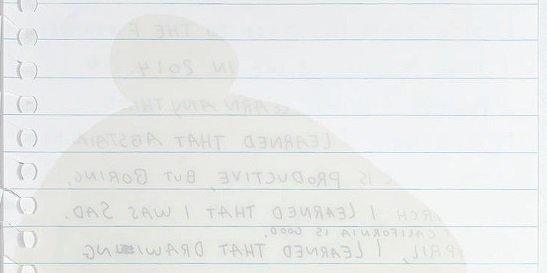 IN THE F
IN 2014.
LEARN ANYTHI
LEARNED THAT ABSTAIN
IS PRODUCTIVE, BUT BORING.
ARCH I LEARNED THAT I WAS SAD.
CALIFORNIA IS GOOD.
APRIL, I LEARNED THAT DRAWING